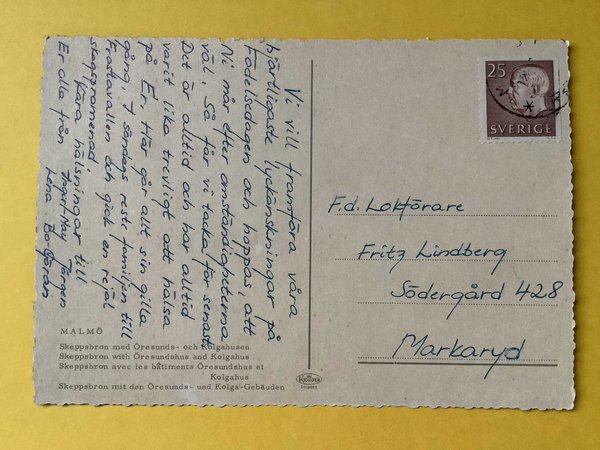 Vi vill framföra våra
hjärtligaste lyckönskningar på
Födelsedagen och hoppas, att
Ni mår efter omständigheterna
väl. Så får vi tacka för senast
Det är alltid och har alltid
varit lika trevligt att hälsa
på Er. Här går allt sin gilla
gång. I Söndags reste familjen till
Frostavallen och gick en rejäl
skogspromenad
Kära hälsningar till
Er alla från Ingert-May Törgen
Lena Bo-Göran
25
SVERIGE
F.d. Lokförare
Fritz Lindberg
Södergård 428
Markaryd
MALMÖ
Skeppsbron med Öresunds- och Kolgahusen
Skeppsbron with Öresundshus and Kolgahus
Skeppsbron avec les bâtiments Öresundshus et
Kolgahus
Skeppsbron mit den Öresunds- und Kolga-Gebäuden
KRÜGER